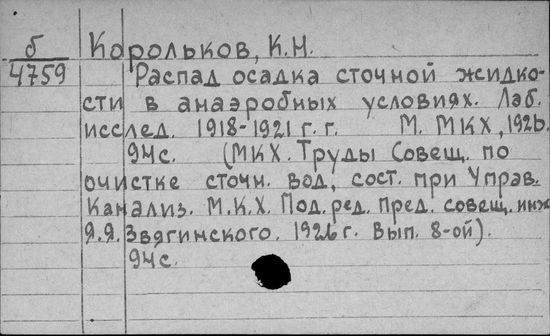 б Корольков, К.Н.
4759 Распад осадка сточной жидко-
сти в анаэробных условиях. Лаб.
исслед. 1918-1921 г.г. М. МКХ, 1926.
94с. (МКХ. Труды Совещ. по
очистке сточн. вод, сост. при Управ.
Канализ. М.К.Х. Под. ред. пред. совещ. инж
Я.Я. Звягинского. 1926 г. Вып. 8-ой).
94с.